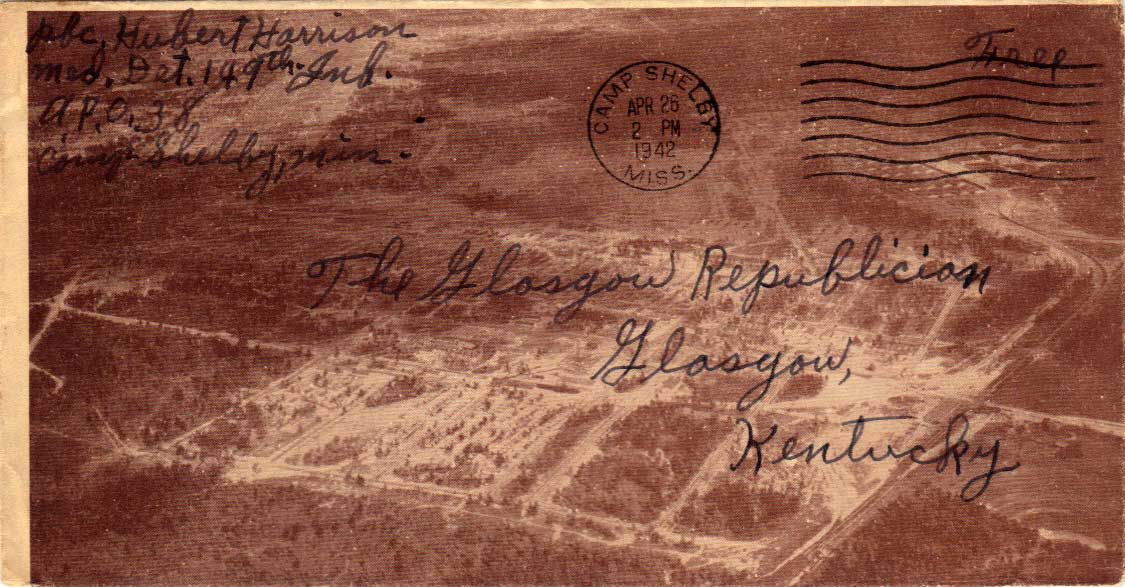 Pfc. Hubert Harrison
Med. Det. 149th Inf.
A.P.O. 38
Camp Shelby, Miss.
Free
CAMP SHELBY
APR 26
2 PM
1942
MISS.
The Glasgow Republician
Glasgow,
Kentucky